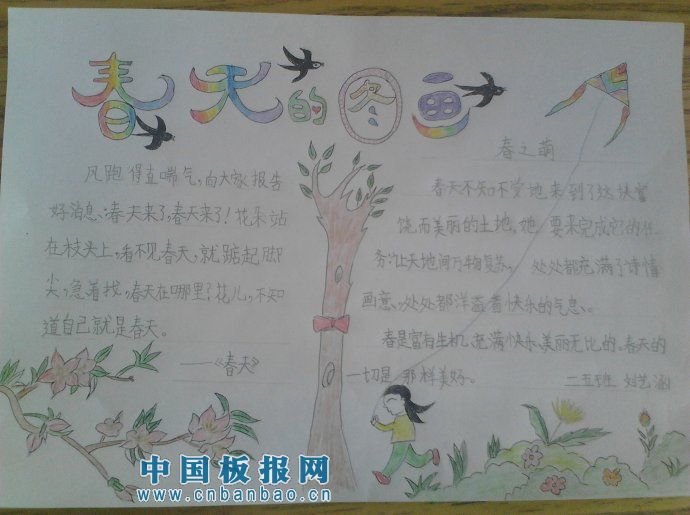 春天的图画
风跑得直喘气，向大家报告
好消息：春天来了，春天来了！花朵站
在枝头上，看不见春天，就踮起脚
尖，急着找，春天在哪里？花儿，不知
道自己就是春天。
——《春天》
春之萌
春天不知不觉地来到了这块富
饶而美丽的土地，她要来完成它的任
务：让天地间万物复苏，处处都充满了诗情
画意、处处都洋溢着快乐的气息。
春是富有生机、充满快乐、美丽无比的。春天的
一切是那样美好。
二五班 刘艺涵
中国板报网
www.cnbanbao.cn